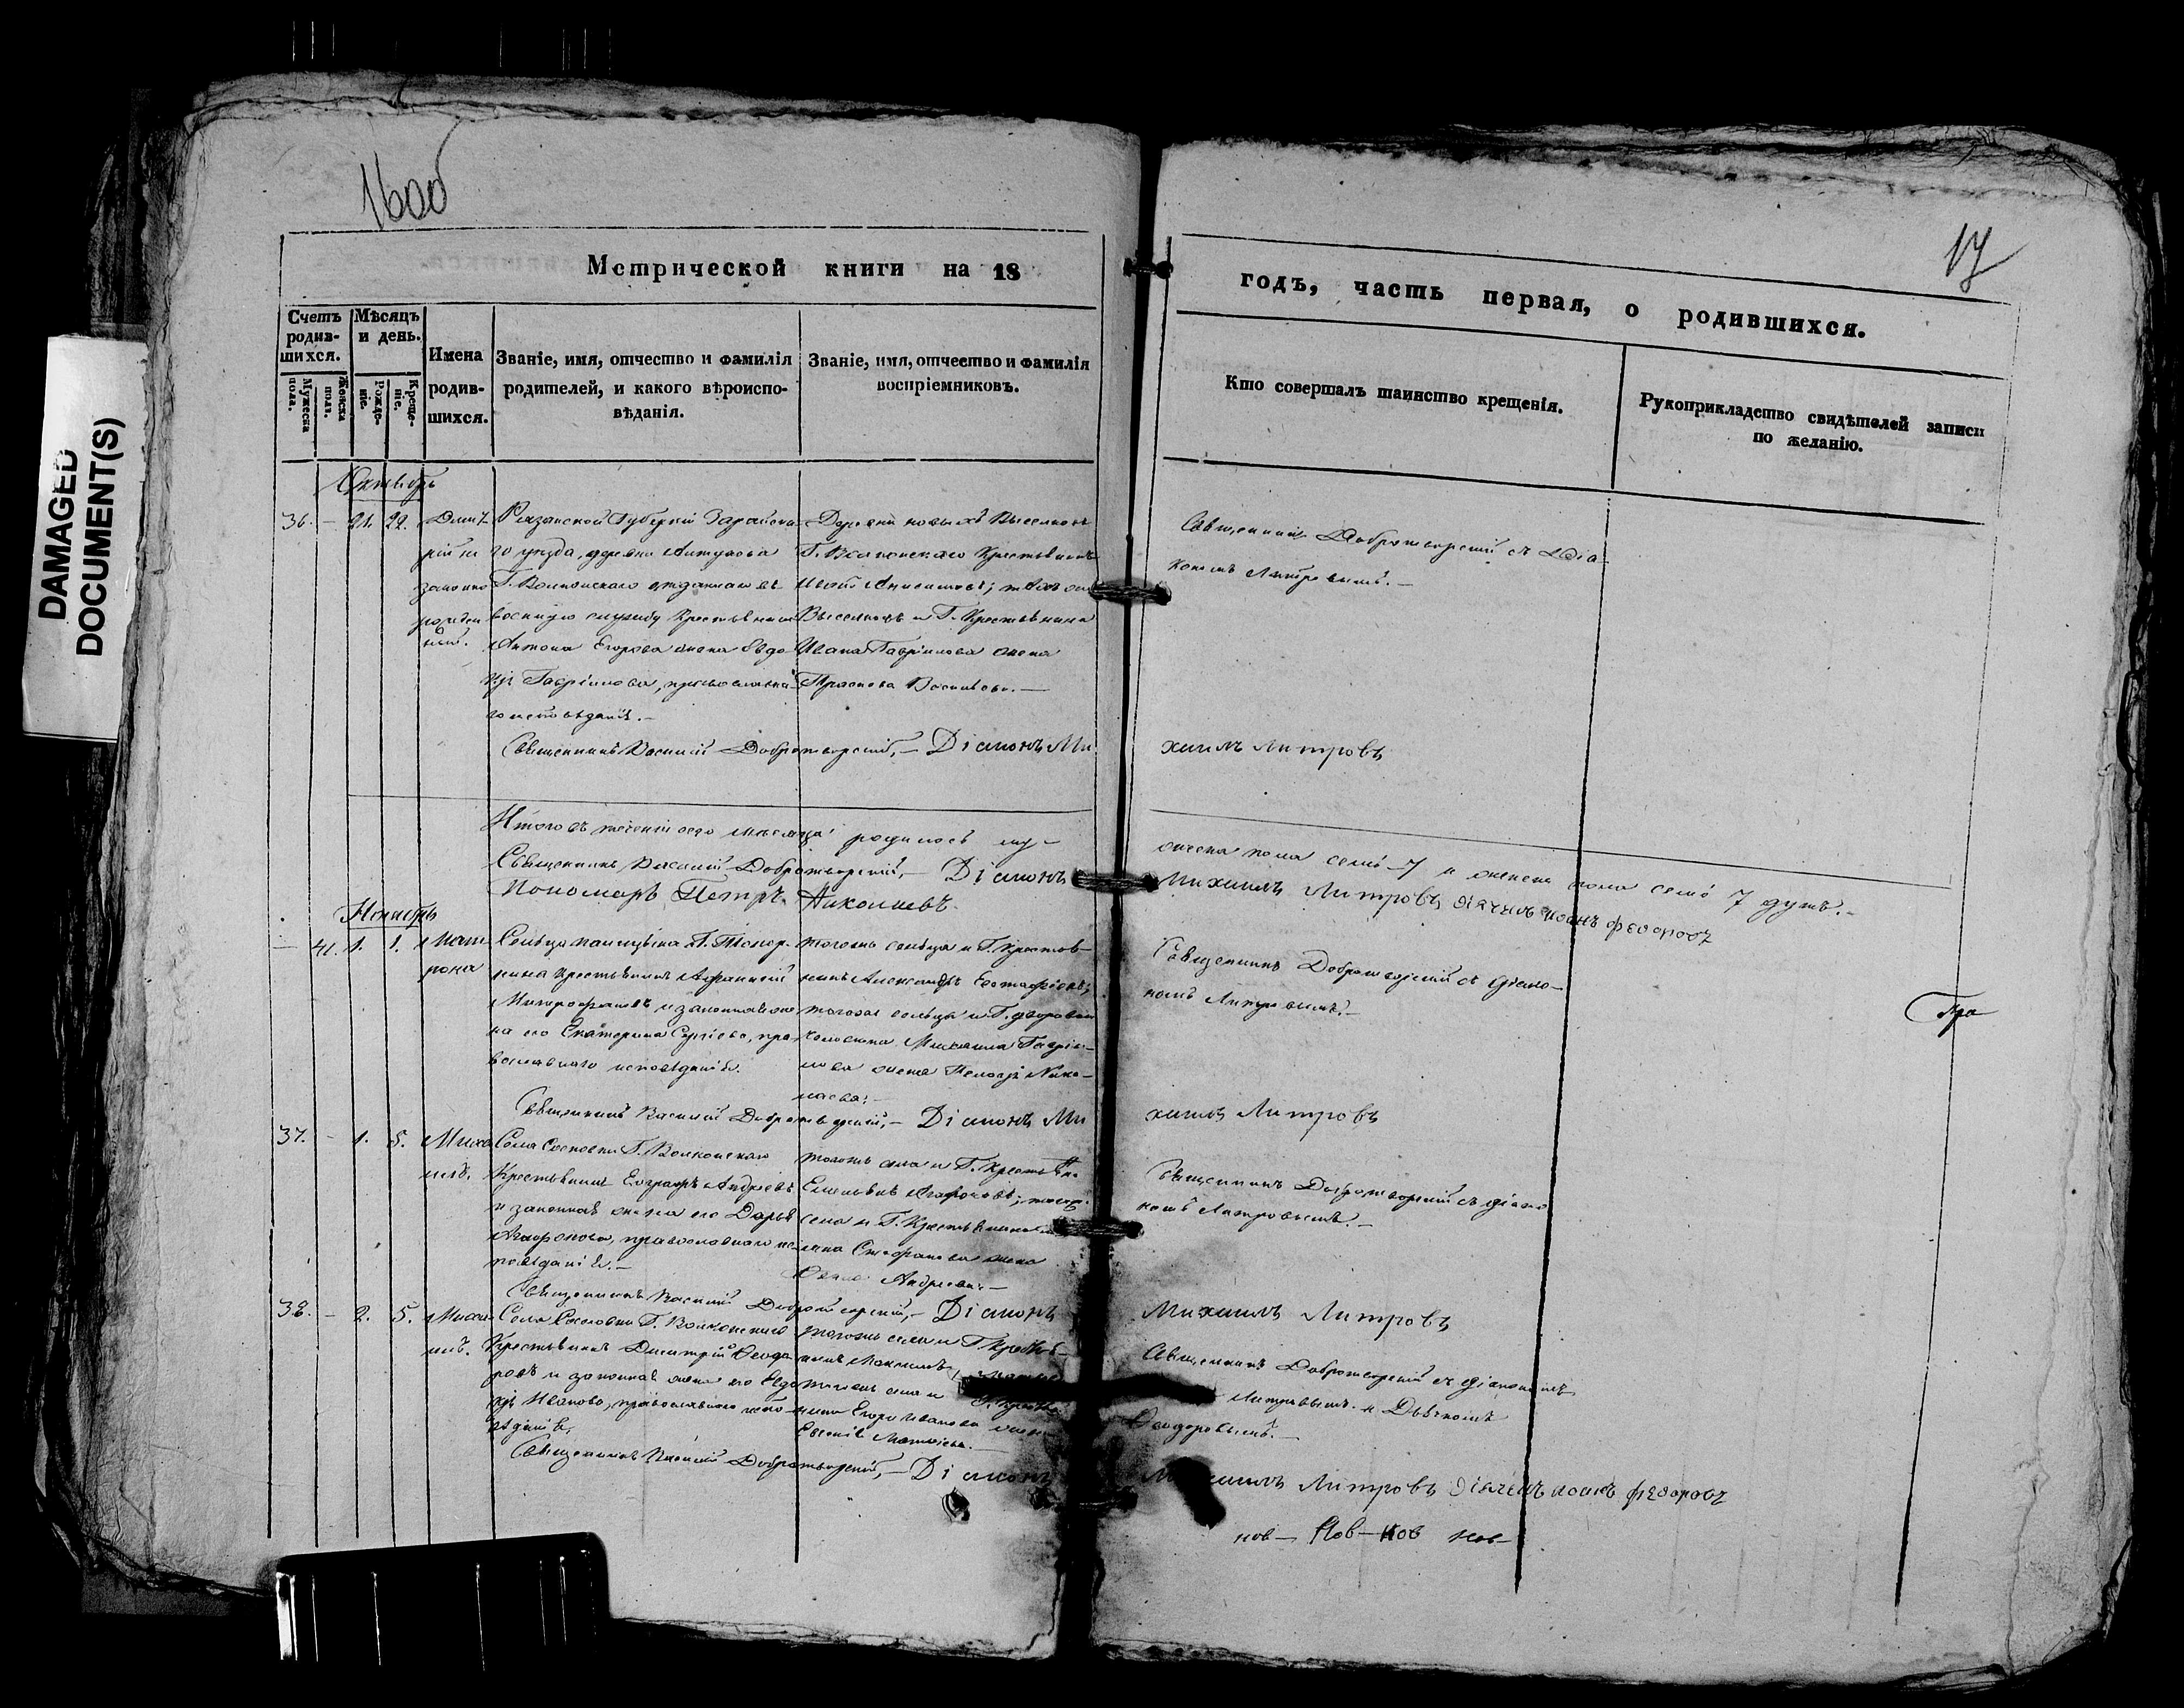 DAMAGED
DOCUMENT(S)
160об
17
Метрической книги на 18
годъ, часть первая, о родившихся.
Счетъ родив-
шихся.
Мужеска пола.
Женска пола.
Мѣсяцъ
и день.
Рожде-
ніе.
Креще-
ніе.
Имена
родив-
шихся.
Званіе, имя, отчество и фамилія
родителей, и какого вѣроиспо-
вѣданія.
Званіе, имя, отчество и фамилія
воспріемниковъ.
Кто совершалъ таинство крещенія.
Рукоприкладство свидѣтелей записи
по желанію.
Октябрь
36. – 21. 22.
Дмит-
рій не
законно
рожден
ный.
Рязанской Губерніи Зарайска-
го уѣзда, деревни
Г. Волконскаго отданнаго въ
военную службу Крестьянина
Антона Егорова жена Евдо-
кія Гаврилова, православна-
го исповѣданія.–
Деревни новыхъ Выселокъ
Г. Волконскаго Крестьянинъ
тѣхъ же
Выселокъ и Г. Крестьянина
Ивана Гаврилова жена
Прасковья Васильева.–
Священникъ Доброт­ворскій съ Діа-
кономъ Литровымъ.–
Священникъ Василій Добротворскій,– Діаконъ Ми
хаилъ Литровъ
Итого въ теченіи сего мѣсяца родилось му-
жеска пола семь 7 и женска пола семь 7 душъ.–
Священникъ Василій Добротворскій,– Діаконъ
Михаилъ Литровъ Діячекъ Иоанъ Федоровъ
Пономарь Петръ Николаевъ
Ноябрь
– 41. 1. 1.
Мат-
рона
Сельца
крестьянинъ Афанасій
Митрофановъ и законная же-
на его Екатерина Сергіева, пра-
вославнаго исповѣданія.
тогожъ сельца и Г. Крестья-
нинъ Александръ Евстафіевъ;
тогожъ сельца и Г. дворова-
го человека Михаила Гаври-
лова жена Пелагія Нико-
лаева.–
Священникъ Добротворскій съ діако-
номъ Литровымъ.–
Тра
Священникъ Василій Добротворскій,– Діаконъ Ми
хаилъ Литровъ
37. – 1. 5.
Миха
илъ.
Села Сосновки Г. Волконскаго
Крестьянинъ Евграфъ Андреевъ
и законная жена его Дарья
Агафонова, православнаго ис-
повѣданія.–
тогожъ села и Г. Крестьян.
Емельянъ Агафоновъ; тогож.
села и Г. Крестьянина
Стефанова жена
Андреева.–
Священникъ Добротворскій съ діако
номъ Литровымъ.–
Священникъ Василій Добротворскій,– Діаконъ
Михаилъ Литровъ
38. – 2. 5.
Миха
илъ.
Села Сосновки Г. Волконскаго
Крестьянинъ Дмитрій Феодо-
ровъ и законная жена его Евдо-
кія Иванова, православнаго испо-
вѣданія.
тогожъ села и Г. Крестья-
нинъ Максимъ
тогожъ села и Г. Крестья
нина Егора Иванова жена
Евгенія Матвіева.–
Священникъ Добротворскій съ діакономъ
Литровымъ и Дьячкомъ
Феодоровымъ.–
Священникъ Василій Добротворскій,– Діаконъ
Михаилъ Литровъ Діячекъ Иоанъ Федоровъ
нов– Нов– Нов нов–